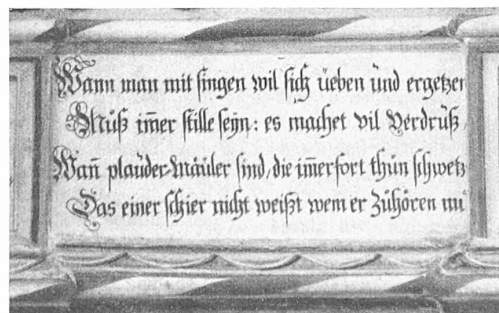 Wann man mit singen wil sich üeben und ergetzen
Muß im̄er stille seyn: es machet vil Verdruß
Wan̄ plauder-mäuler sind, die im̄erfort thun schwetz
Das einer schier nicht weißt wem er Zuhören mu